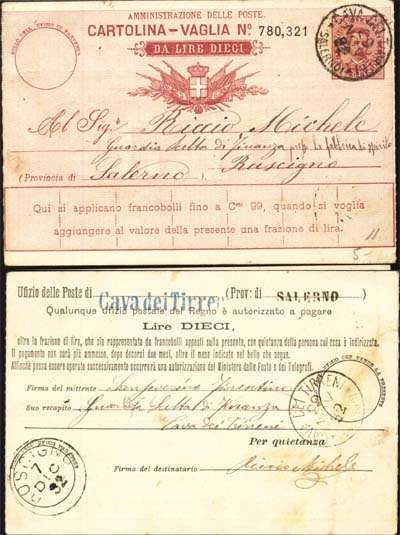 AMMINISTRAZIONE DELLE POSTE.
CARTOLINA-VAGLIA Nº 780,321
DA LIRE DIECI
Al Sig.r Riccio Michele
Guardia Scelta di finanza presso la fabbrica di spirito
(Provincia di Salerno) Ruscigno
Qui si applicano francobolli fino a Cmi 99, quando si voglia
aggiungere al valore della presente una frazione di lira.
Ufizio delle Poste di Cava dei Tirreni (Prov: di SALERNO)
Qualunque ufizio postale del Regno è autorizzato a pagare
Lire DIECI,
oltre la frazione di lire, che sia rappresentata da francobolli apposti sulla presente, con quietanza della persona cui essa è indirizzata.
Il pagamento non sarà più ammesso, dopo decorsi due mesi, oltre il mese indicato nel bollo che segue.
Affinchè possa essere operato successivamente occorrerà una autorizzazione del Ministero delle Poste e dei Telegrafi.
Firma del mittente Sanseverino Fiorentino
Suo recapito Guardia Scelta di Finanza
Cava dei Tirreni
Per quietanza
Firma del destinatario Riccio Michele
ROSCIGNO
7
DIC
92